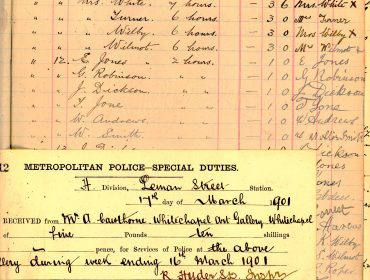 " " Mrs. White. 7 hours. - 3 6 Mrs White X
" " Turner 6 hours. - 3 0 Turner
" " Wilby. 6 hours. - 3 0 Mrs Wilby X
" " Wilmot 6 hours. - 3 0 Mrs Wilmot X
" 12. E Jones " 2 hours. - 1 0 E Jones
" " G. Robinson. " " - 1 0 G Robinson
" " J. Dickson " " - 1 0 J Dickson
" " T. Jone " " - 1 0 T Jone
" " W. Andrews " " - 1 0 W Andrews
" " W. Smith. " " - 1 0
Dickson
Jones
12 METROPOLITAN POLICE—SPECIAL DUTIES.
H. Division, Leman Street Station.
17th day of March 1901
RECEIVED from Mr A Cawthorne. Whitechapel Art Gallery, Whitechapel
Five Pounds ten shillings
pence, for Services of Police at the above
llery during week ending 16th March 1901
R Wilby
S. Wilmot